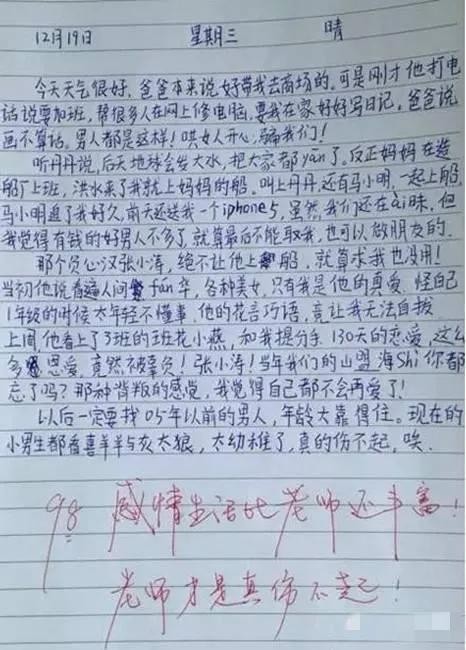 12月19日 星期三 晴
今天天气很好，爸爸本来说好带我去商场的。可是刚才他打电
话说要加班，帮很多人在网上修电脑，要我在家好好写日记，爸爸说
画不算话。男人都是这样！哄女人开心，骗我们！
听丹丹说，后天地球会发大水，把大家都yān了。反正妈妈在造
船厂上班，洪水来了我就上妈妈的船。叫上丹丹，还有马小明，一起上船，
马小明追了我好久，前天还送我一个iphone5，虽然我们还在ài昧，但
我觉得有钱的好男人不多了，就算最后不能取我，也可以做朋友的。
那个负心汉张小涛，绝不让他上船，就算求我也没用！
当初他说看遍人间fán华，各种美女，只有我是他的真爱，怪自己
1年级的时候太年轻不懂事，他的花言巧语，竟让我无法自拔
上周他看上了3班的班花小燕，和我提分手，130天的恋爱，这么
多恩爱，竟然不被辜负！张小涛！当年我们的山盟海Shi你都
忘了吗？那种背叛的感觉，我觉得自己都不会再爱了！
以后一定要找05年以前的男人，年龄大靠得住。现在的
小男生都看喜羊羊与灰太狼，太幼稚了，真的伤不起，唉．
98 感情生活比老师还丰富！
老师才是真伤不起！